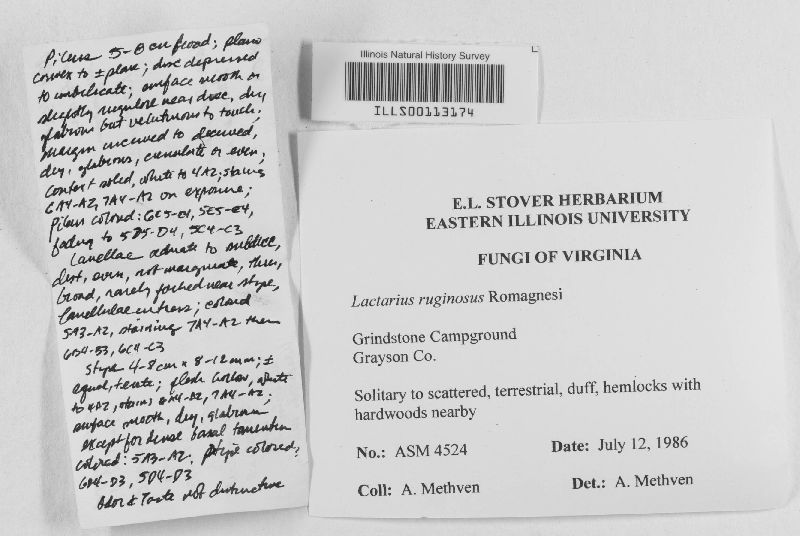 Pileus 5-8 cm broad; plano
convex to ± plane; disc depressed
to umbilicate; surface smooth or
slightly rugulose near disc, dry
glabrous but velutinous to touch;
margin incurved to decurved,
dry, glabrous, crenulate or even;
context solid, white to 4A2; stains
6A4-A2, 7A4-A2 on exposure;
Pileus colored: 6E5-E4, 5E5-E4,
fading to 5D5-D4, 5C4-C3
Lamellae adnate to subdec,
dist, even, not marginate, thin,
broad, rarely forked near stipe,
lamellulae entress; colored
5A3-A2, staining 7A4-A2 then
6B4-B3, 6C4-C3
Stipe 4-8 cm x 8-12 mm; ±
equal, terete; flesh hollow, white
to 4A2, stains 6A4-A2, 7A4-A2;
surface smooth, dry, glabrous
except for dense basal tomentum
colored: 5A3-A2; stipe colored;
6D4-D3, 5D4-D3
Odor & Taste not distinctive
Illinois Natural History Survey
ILLS00113174
E.L. STOVER HERBARIUM
EASTERN ILLINOIS UNIVERSITY
FUNGI OF VIRGINIA
Lactarius ruginosus Romagnesi
Grindstone Campground
Grayson Co.
Solitary to scattered, terrestrial, duff, hemlocks with
hardwoods nearby
No.: ASM 4524 Date: July 12, 1986
Coll: A. Methven Det.: A. Methven